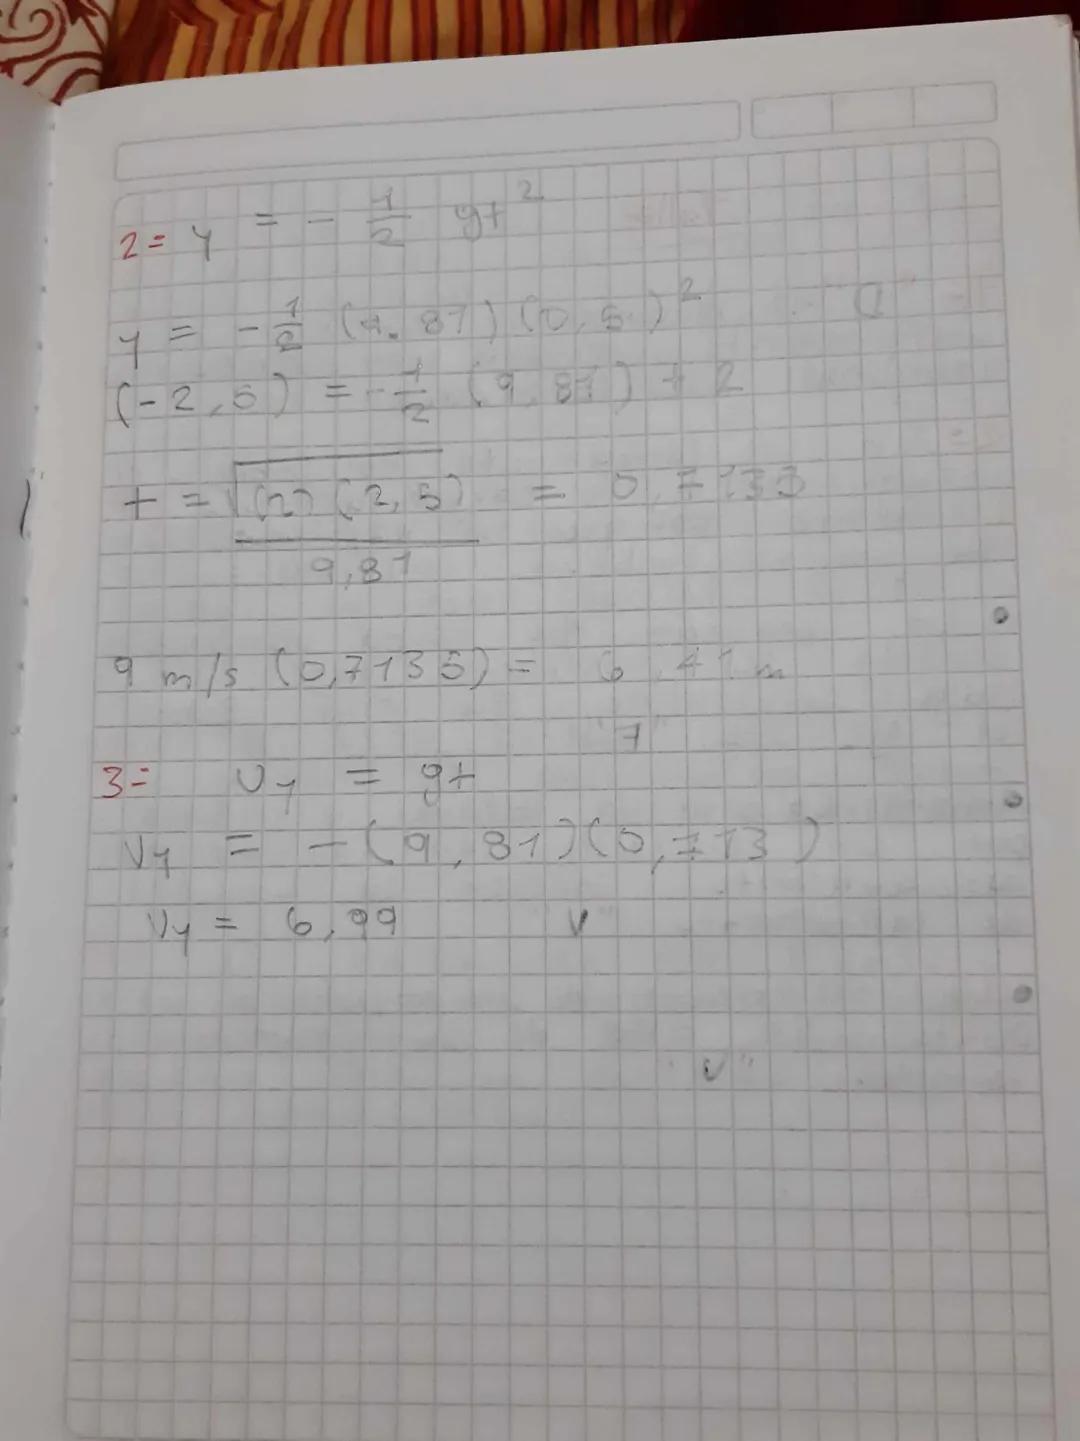 2= y = - 1/2 gt²
y = - 1/2 (9.81) (0,5)²
(-2,5) = - 1/2 (9,81) t 2
t = √(2) (2,5) / 9,81 = 0,7133
9 m/s (0,7135) = 6,41 m
"7"
3= Vy = gt
Vy = - (9,81) (0,713)
Vy = 6,99 V
"V"